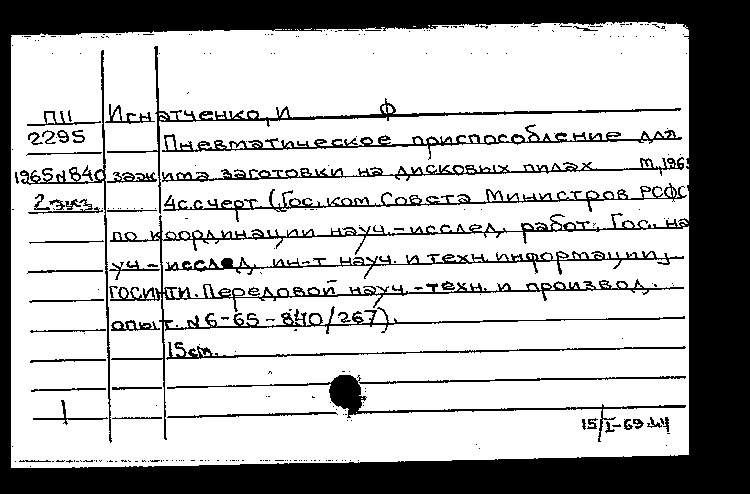 П11 Игнатченко, И Ф
2295 Пневматическое приспособление для
1965 N 840 зажима заготовки на дисковых пилах М, 1965
2 экз. 4с.счерт (Гос. ком. Совета Министров РСФС
по координации науч.-исслед. работ. Гос. на
уч-исслед. ин-т науч. и техн. информации,
ГОСИНТИ. Передовой науч.-техн. и производ.
опыт. N 6-65-840/267).
15см.
1
15/I-69